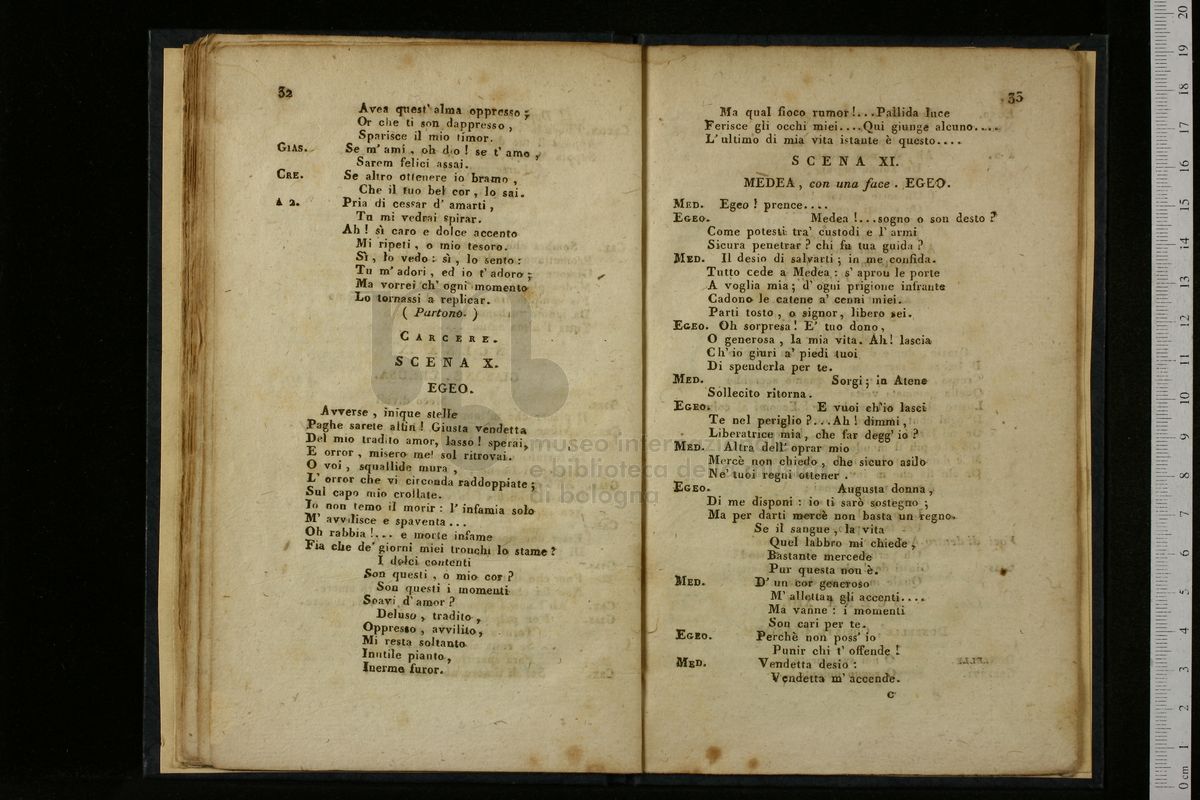 32
Avea quest' alma oppresso ;
Or che ti son dappresso ,
Sparisce il mio timor.
GIAS. Se m' ami , oh dio ! se t' amo ,
Sarem felici assai.
CRE. Se altro ottenere io bramo ,
Che il tuo bel cor , lo sai.
A 2. Pria di cessar d' amarti ,
Tu mi vedrai spirar.
Ah ! sì caro e dolce accento
Mi ripeti , o mio tesoro.
Sì , lo vedo : sì , lo sento :
Tu m' adori , ed io t' adoro ;
Ma vorrei ch' ogni momento
Lo tornassi a replicar.
( Partono. )
CARCERE.
SCENA X.
EGEO.
Avverse , inique stelle
Paghe sarete alfin ! Giusta vendetta
Del mio tradito amor, lasso ! sperai,
E orror , misero me! sol ritrovai.
O voi , squallide mura ,
L' orror che vi circonda raddoppiate ;
Sul capo mio crollate.
Io non temo il morir : l' infamia solo
M' avvilisce e spaventa ...
Oh rabbia !... e morte infame
Fia che de' giorni miei tronchi lo stame ?
I dolci contenti
Son questi , o mio cor ?
Son questi i momenti
Soavi d' amor ?
Deluso , tradito ,
Oppresso , avvilito ,
Mi resta soltanto
Inutile pianto ,
Inerme furor.
33
Ma qual fioco rumor !...Pallida luce
Ferisce gli occhi miei....Qui giunge alcuno....
L' ultimo di mia vita istante è questo....
SCENA XI.
MEDEA , con una face . EGEO.
MED. Egeo ! prence....
EGEO. Medea !...sogno o son desto ?
Come potesti tra' custodi e l' armi
Sicura penetrar ? chi fu tua guida ?
MED. Il desio di salvarti ; in me confida.
Tutto cede a Medea : s' aprou le porte
A voglia mia ; d' ogni prigione infrante
Cadono le catene a' cenni miei.
Parti tosto , o signor , libero sei.
EGEO. Oh sorpresa ! E' tuo dono ,
O generosa , la mia vita. Ah! lascia
Ch' io giuri a' piedi tuoi
Di spenderla per te.
MED. Sorgi ; in Atene
Sollecito ritorna .
EGEO. E vuoi ch'io lasci
Te nel periglio ?...Ah ! dimmi ,
Liberatrice mia , che far degg' io ?
MED. Altra dell' oprar mio
Mercè non chiedo , che sicuro asilo
Ne' tuoi regni ottener .
EGEO. Augusta donna ,
Di me disponi : io ti sarò sostegno ;
Ma per darti mercè non basta un regno.
Se il sangue , la vita
Quel labbro mi chiede ,
Bastante mercede
Pur questa non è.
MED. D' un cor generoso
M' allettan gli accenti....
Ma vanne : i momenti
Son cari per te.
EGEO. Perchè non poss' io
Punir chi t' offende !
MED. Vendetta desio :
Vendetta m' accende.
C
museo internazionale
e biblioteca de
di bologna
0 cm 1 2 3 4 5 6 7 8 9 10 11 12 13 14 15 16 17 18 19 20